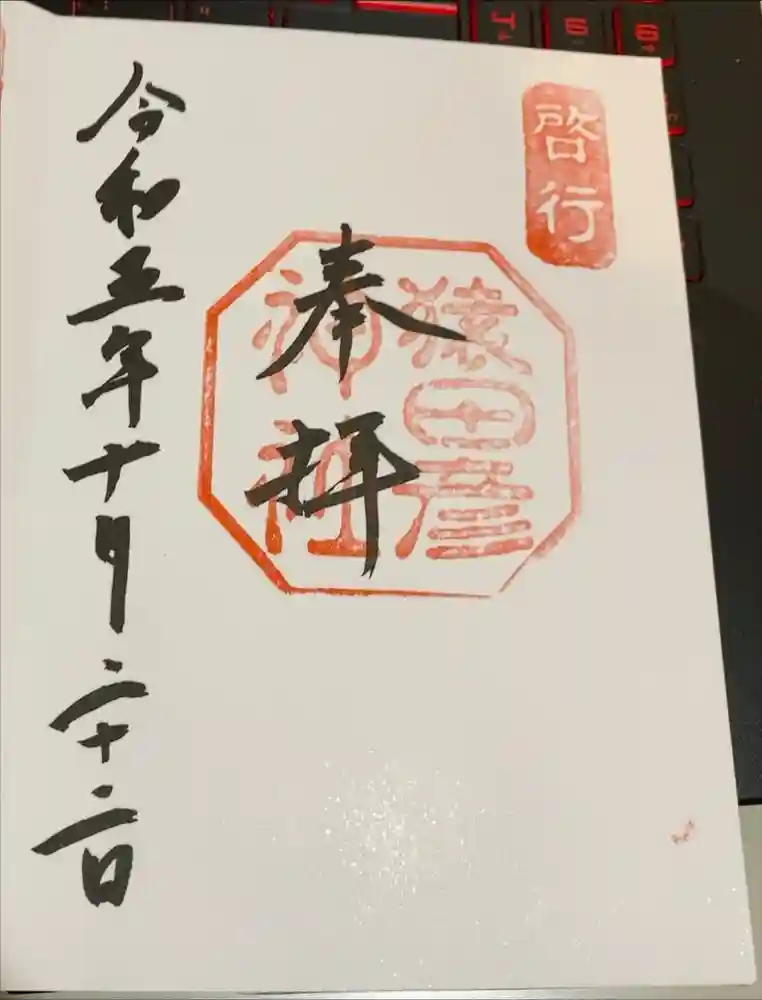 啓行
猿田彦
神社
奉拝
令和五年十月二十二日
4
5
6